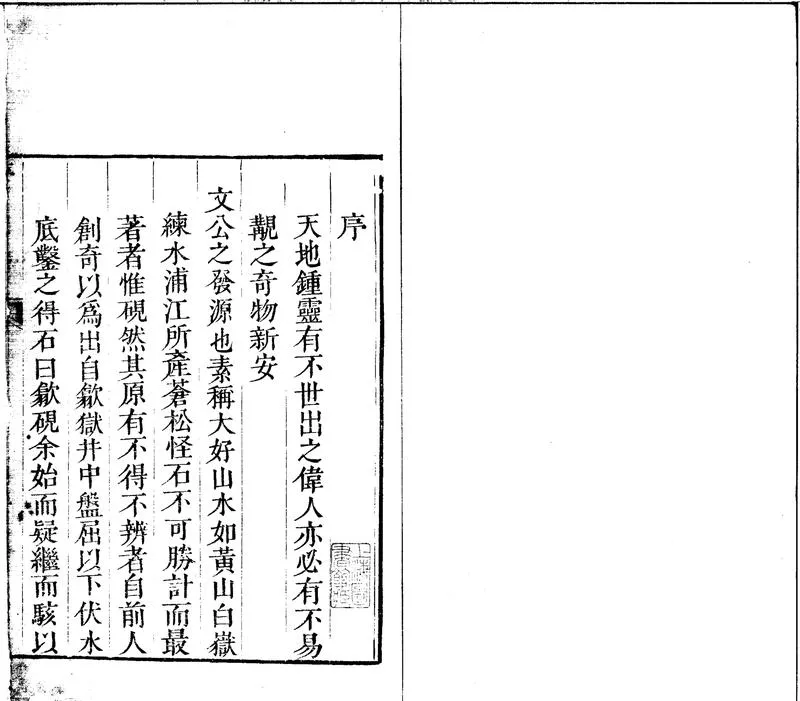 序
天地鍾靈有不世出之偉人亦必有不易
覩之奇物新安
文公之發源也素稱大好山水如黃山白嶽
練水浦江所產蒼松怪石不可勝計而最
著者惟硯然其原有不得不辨者自前人
創奇以爲出自歙獄井中盤屈以下伏水
底鑿之得石曰歙硯余始而疑繼而駭以